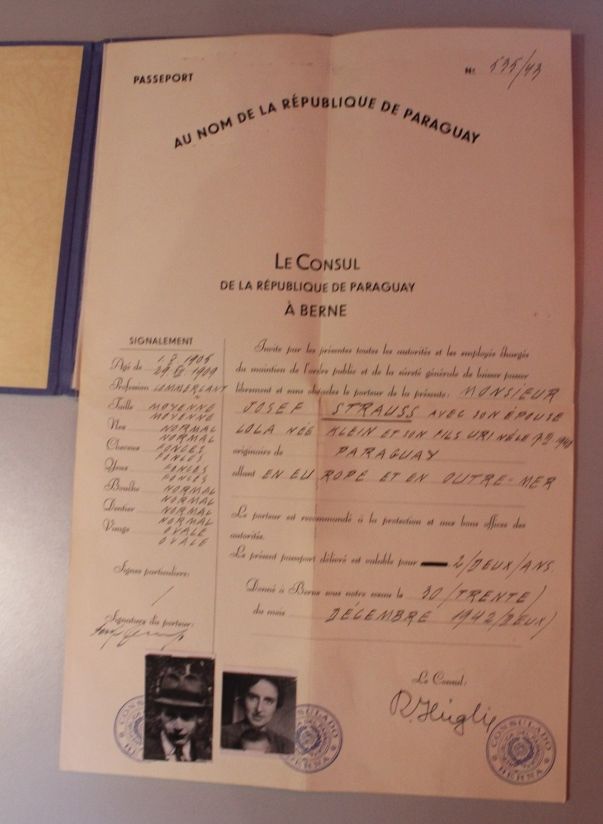 PASSEPORT
Nº 535/43
AU NOM DE LA RÉPUBLIQUE DE PARAGUAY
LE CONSUL
DE LA RÉPUBLIQUE DE PARAGUAY
À BERNE
SIGNALEMENT
Agé de 1905
1909
Profession COMMERÇANT
Taille MOYENNE
MOYENNE
Nez NORMAL
NORMAL
Cheveux FONCES
FONCES
Yeux FONCES
FONCES
Bouche NORMAL
NORMAL
Dentier NORMAL
NORMAL
Visage OVALE
OVALE
Signes particuliers:
/
Signature du porteur:
Invite par les présentes toutes les autorités et les employés chargés
du maintien de l'ordre public et de la sûreté générale de laisser passer
librement et sans obstacles le porteur de la présente: MONSIEUR
JOSEF STRAUSS AVEC SON ÉPOUSE
LOLA NÉE KLEIN ET SON FILS URI NÉ LE
originaire de PARAGUAY
allant EN EUROPE ET EN OUTRE-MER
Le porteur est recommandé à la protection et aux bons offices des
autorités.
Le présent passeport délivré est valable pour 2/DEUX/ANS
Donné à Berne sous notre sceau le 30/TRENTE/
du mois DÉCEMBRE 1942/DEUX/
Le Consul:
R. Hügli
CONSULADO
BERNA
CONSULADO
BERNA